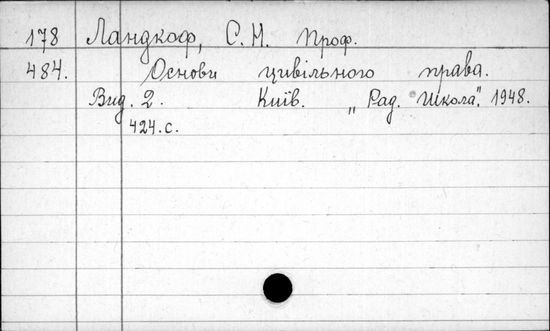 178 Ландкоф, С. Н. Проф.
484. Основи цивільного права.
Вид. 2. Київ. „Рад. Школа“. 1948.
424. с.